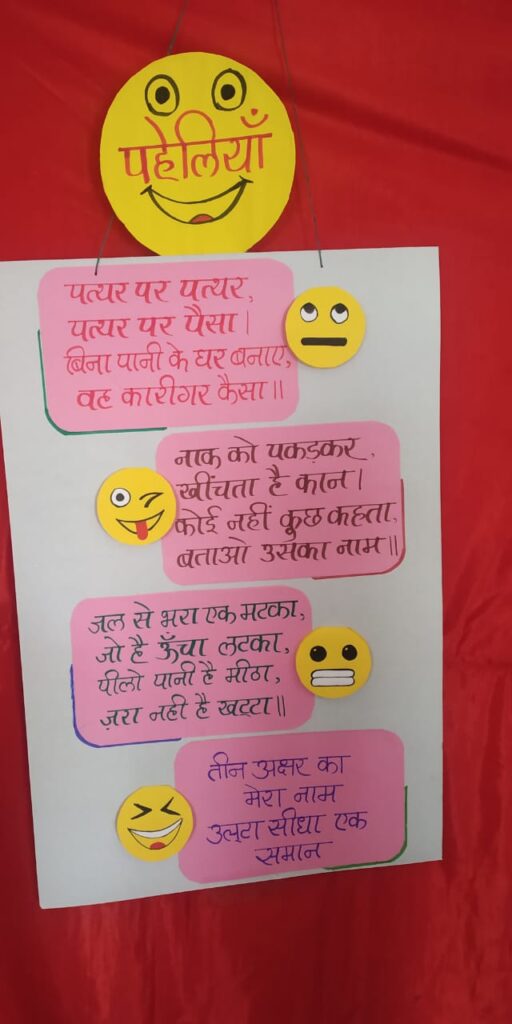 पहेलियाँ
पत्थर पर पत्थर,
पत्थर पर पैसा।
बिना पानी के घर बनाए,
वह कारीगर कैसा॥
नाक को पकड़कर,
खींचता है कान।
कोई नहीं कुछ कहता,
बताओ उसका नाम॥
जल से भरा एक मटका,
जो है ऊँचा लटका,
पीलो पानी है मीठा,
ज़रा नही है खट्टा॥
तीन अक्षर का
मेरा नाम
उल्टा सीधा एक
समान